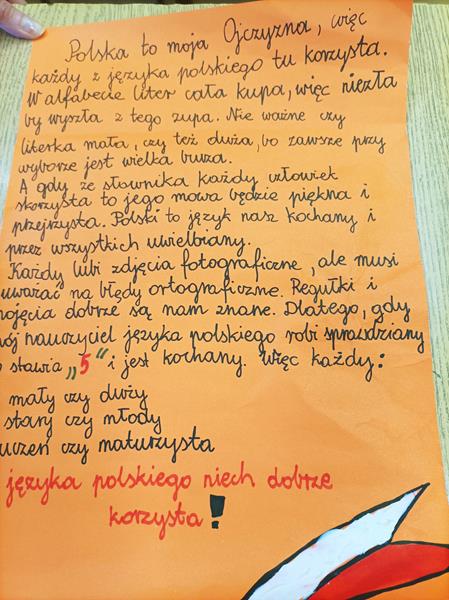 Polska to moja Ojczyzna, więc
każdy z języka polskiego tu korzysta.
W alfabecie liter cała kupa, więc niezła
by wyszła z tego zupa. Nie ważne czy
literka mała, czy też duża, bo zawsze przy
wyborze jest wielka burza.
A gdy ze słownika każdy człowiek
skorzysta to jego mowa będzie piękna i
przejrzysta. Polski to język nasz kochany i
przez wszystkich uwielbiany.
Każdy lubi zdjęcia fotograficzne, ale musi
uważać na błędy ortograficzne. Regułki i
pojęcia dobrze są nam znane. Dlatego, gdy
mój nauczyciel języka polskiego robi sprawdziany
to stawia „5" i jest kochany. Więc każdy:
mały czy duży
stary czy młody
uczeń czy maturzysta
języka polskiego niech dobrze
korzysta!